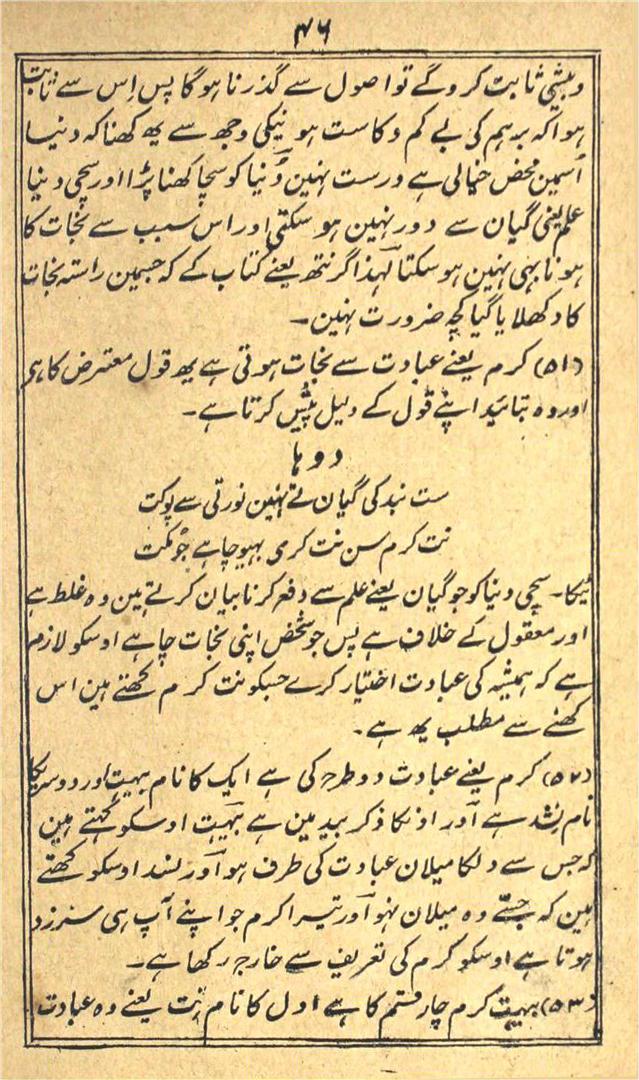 ۴۶
وبیشی ثابت کروگے تو اصول سے گذرنا ہوگا پس اِس سے ثابت
ہوا کہ برہم کی بے کم و کاست ہونیکی وجھ سے یھ کھنا کہ دنیا
اُسمین محض خیالی ہے درست نہین دُنیا کو سچا کھنا پڑا اور سچی دنیا
علم یعنی گیان سے دور نہین ہو سکتی اور اس سبب سے نجات کا
ہونا بہی نہین ہو سکتا لہذا گرنتھ یعنے کتاب کے کہ جسمین راستہ نجات
کا دکھلایا گیا کچہ ضرورت نہین۔
(۵۱) کرم یعنے عبادت سے نجات ہوتی ہے یھ قول معترض کا ہر
اور وہ بتائید اپنے قول کے دلیل پیش کرتا ہے۔
دوہا
ست نبد کی گیان تے نہین نورتی سے یوکت
نت کرم سن نت کری بہیو چاہے جو مکت
ٹیکا۔ سچی دنیا کو جو گیان یعنے علم سے دفع کرنا بیان کرتے ہین وہ غلط ہے
اور معقول کے خلاف ہے پس جو شخص اپنی نجات چاہے اوسکو لازم
ہے کہ ہمیشہ کی عبادت اختیار کرے جسکو نت کرم کھتے ہین اس
کھنے سے مطلب یھ ہے۔
(۵۲) کرم یعنے عبادت دو طرح کی ہے ایک کا نام بہیت اور دوسریکا
نام نشد ہے اور اونکا ذکر بید مین ہے بہیت اوسکو کہتے ہین
کہ جس سے دلکا میلان عبادت کی طرف ہو اور نسد اوسکو کھتے
ہین کہ جسے وہ میلان نہو اور تیسرا کرم جو اپنے آپ ہی سرزد
ہوتا ہے اوسکو کرم کی تعریف سے خارج رکھا ہے۔
(۵۳) بہیت کرم چار قسم کا ہے اول کا نام نت یعنے وہ عبادت